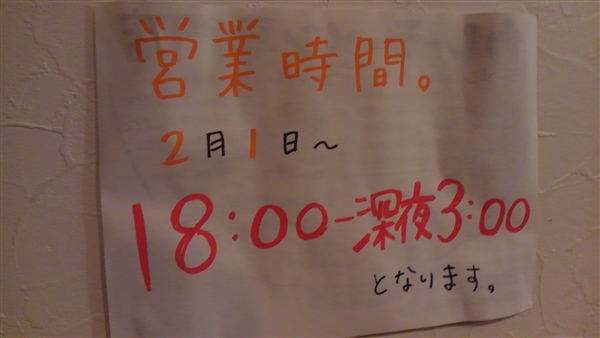 営業時間。
2月1日～
18:00-深夜3:00
となります。